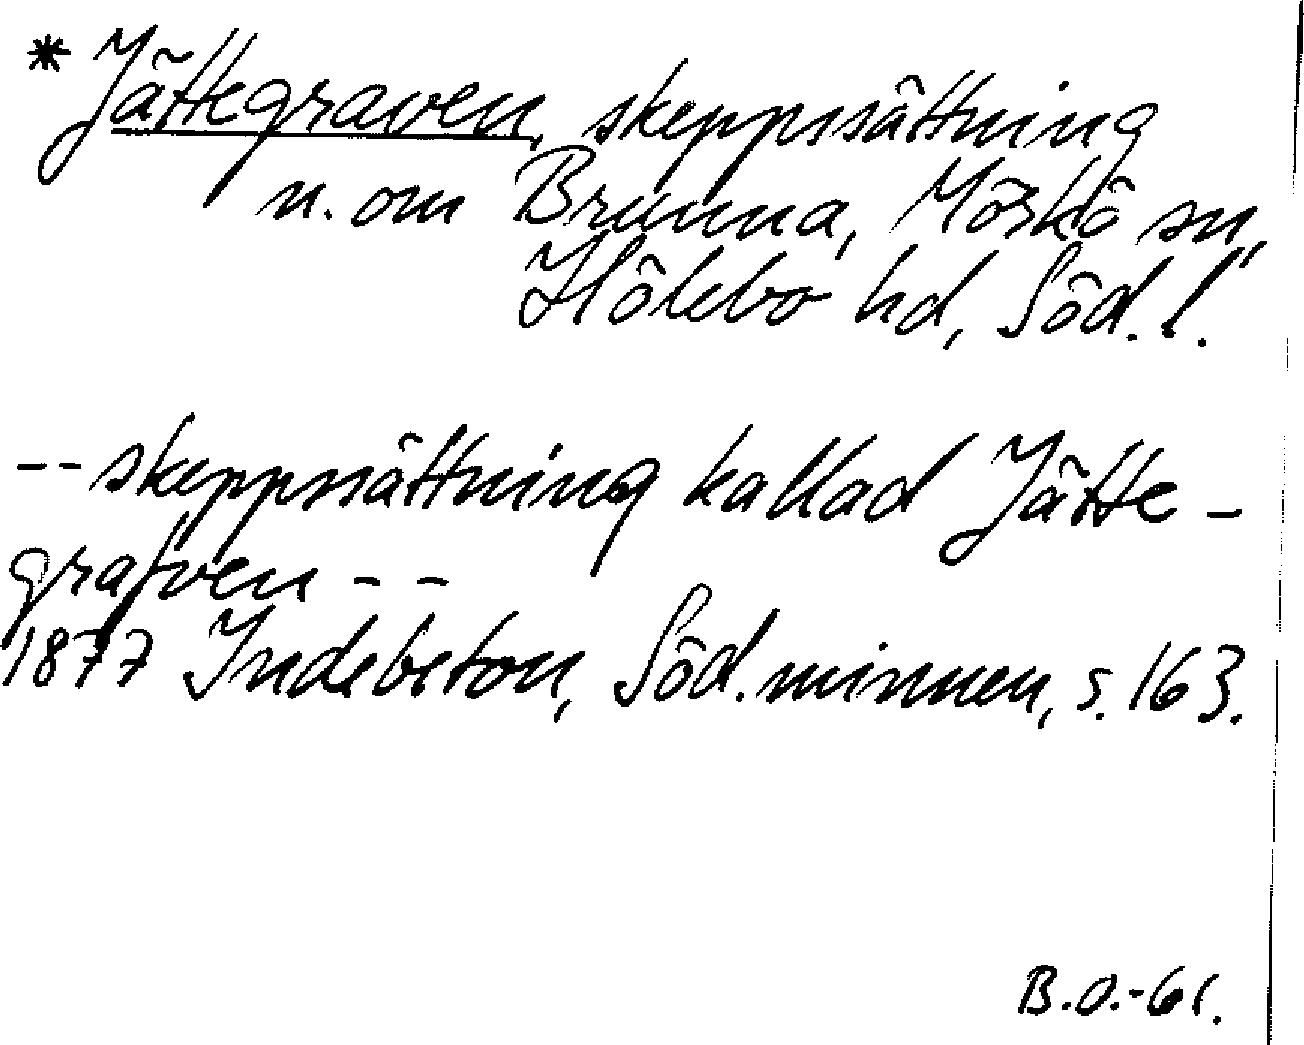 * Jättegraven, skeppssättning
n. om Brunna, Mörkö sn,
Hölebo hd, Söd. l.
-- skeppssättning kallad Jätte-
grafven --
1877 Indebetou, Söd. minnen, s. 163.
B.O.-61.